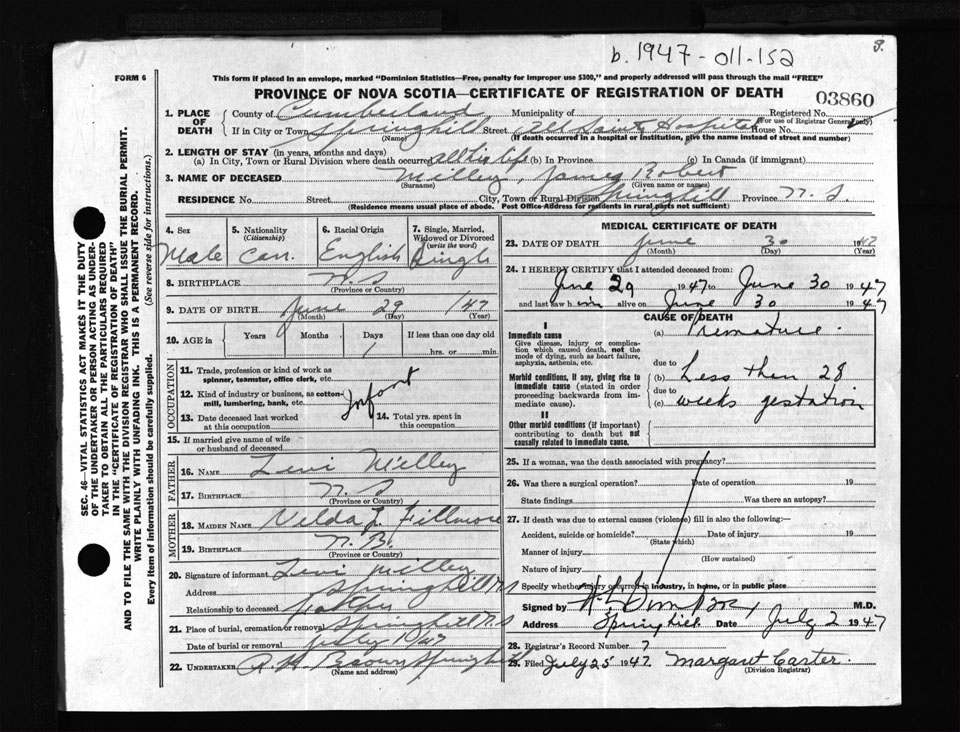 b. 1947-011-152
3.
FORM 6
This form if placed in an envelope, marked "Dominion Statistics—Free, penalty for improper use $300," and properly addressed will pass through the mail "FREE"
PROVINCE OF NOVA SCOTIA—CERTIFICATE OF REGISTRATION OF DEATH
03860
1. PLACE OF DEATH
County of Cumberland Municipality of Registered No.
(For use of Registrar General only)
If in City or Town Springhill Street All Saints Hospital House No.
(Name) (If death occurred in a hospital or institution, give the name instead of street and number)
2. LENGTH OF STAY (in years, months and days)
(a) In City, Town or Rural Division where death occurred all his life (b) In Province (c) In Canada (if immigrant)
3. NAME OF DECEASED Milley, James Robert
(Surname) (Given name or names)
RESIDENCE No. Street City, Town or Rural Division Springhill Province N.S.
(Residence means usual place of abode. Post Office Address for residents in rural parts not sufficient)
4. Sex
Male
5. Nationality
(Citizenship)
Can.
6. Racial Origin
English
7. Single, Married, Widowed or Divorced
(write the word)
Single
8. BIRTHPLACE N.S.
(Province or Country)
9. DATE OF BIRTH June 29 1947
(Month) (Day) (Year)
10. AGE in Years Months Days If less than one day old
1 hrs. or min.
OCCUPATION
11. Trade, profession or kind of work as spinner, teamster, office clerk, etc.
12. Kind of industry or business, as cotton-mill, lumbering, bank, etc.
Infant
13. Date deceased last worked at this occupation
14. Total yrs. spent in this occupation
15. If married give name of wife or husband of deceased
FATHER
16. NAME Levi Milley
17. BIRTHPLACE N.S.
(Province or Country)
MOTHER
18. MAIDEN NAME Velda J. Fillmore
19. BIRTHPLACE N.B.
(Province or Country)
20. Signature of informant Levi Milley
Address Springhill N.S
Relationship to deceased Father
21. Place of burial, cremation or removal Springhill N.S
Date of burial or removal July 1/47
22. UNDERTAKER A. H. Brown Springhill
(Name and address)
MEDICAL CERTIFICATE OF DEATH
23. DATE OF DEATH June 30 1947
(Month) (Day) (Year)
24. I HEREBY CERTIFY that I attended deceased from:
June 29 1947 to June 30 1947
and last saw him alive on June 30 1947
CAUSE OF DEATH
I
Immediate cause
Give disease, injury or complication which caused death, not the mode of dying, such as heart failure, asphyxia, asthenia, etc.
(a) Premature.
due to
Morbid conditions, if any, giving rise to immediate cause (stated in order proceeding backwards from immediate cause).
(b) Less then 28
due to
(c) weeks gestation
II
Other morbid conditions (if important) contributing to death but not causally related to immediate cause.
25. If a woman, was the death associated with pregnancy?
26. Was there a surgical operation? Date of operation 19
State findings Was there an autopsy?
27. If death was due to external causes (violence) fill in also the following:—
Accident, suicide or homicide? Date of injury 19
(State which)
Manner of injury
(How sustained)
Nature of injury
Specify whether injury occurred in industry, in home, or in public place
Signed by M.D.
Address Springhill Date July 2 1947
28. Registrar's Record Number 7
29. Filed July 25 1947. Margaret Carter.
(Division Registrar)
SEC. 46—VITAL STATISTICS ACT MAKES IT THE DUTY
OF THE UNDERTAKER OR PERSON ACTING AS UNDER-
TAKER TO OBTAIN ALL THE PARTICULARS REQUIRED
IN THE "CERTIFICATE OF REGISTRATION OF DEATH"
AND TO FILE THE SAME WITH THE DIVISION REGISTRAR WHO SHALL ISSUE THE BURIAL PERMIT.
WRITE PLAINLY WITH UNFADING INK. THIS IS A PERMANENT RECORD.
Every item of information should be carefully supplied. (See reverse side for instructions.)